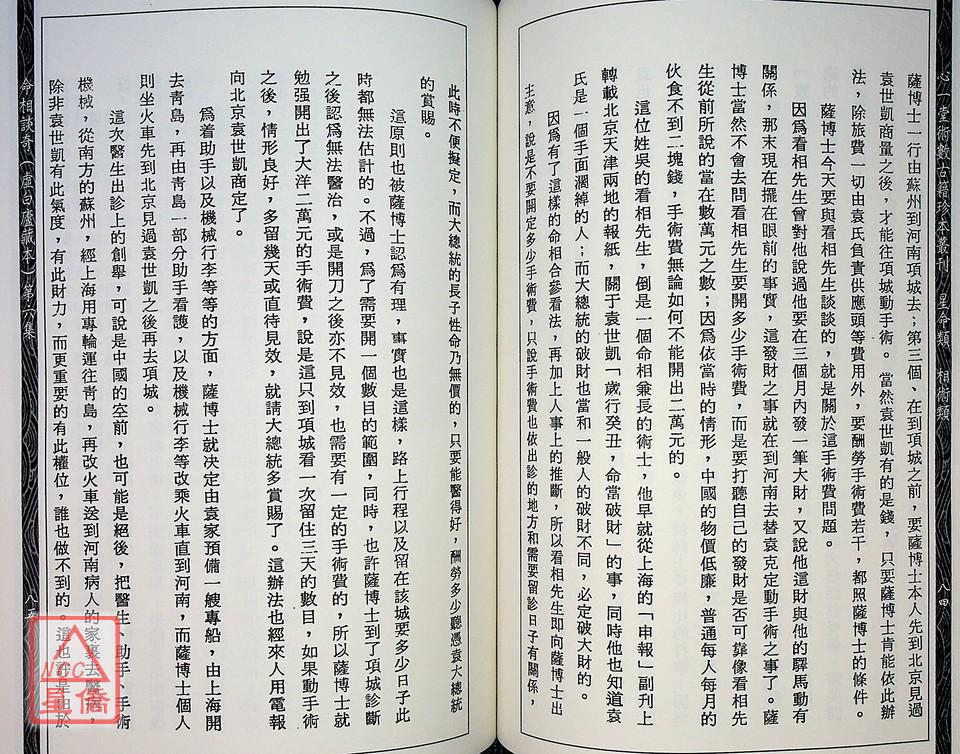 心一堂術數古籍珍本叢刊　星命類　相術類
八四
薩博士一行由蘇州到河南項城去；第三個、在到項城之前，要薩博士本人先到北京見過
袁世凱商量之後，才能往項城動手術。當然袁世凱有的是錢，只要薩博士肯能依此辦
法，除旅費一切由袁氏負責供應頭等費用外，要酬勞手術費若干，都照薩博士的條件。
薩博士今天要與看相先生談談的，就是關於這手術費問題。
因爲看相先生曾對他說過他要在三個月內發一筆大財，又說他這財與他的驛馬動有
關係，那末現在擺在眼前的事實，這發財之事就在到河南去替袁克定動手術之事了。薩
博士當然不會去問看相先生要開多少手術費，而是要打聽自己的發財是否可靠像看相先
生從前所說的當在數萬元之數；因爲依當時的情形，中國的物價低廉，普通每人每月的
伙食不到二塊錢，手術費無論如何不能開出二萬元的。
這位姓吳的看相先生，倒是一個命相兼長的術士，他早就從上海的「申報」副刋上
轉載北京天津兩地的報紙，關于袁世凱「歲行癸丑，命當破財」的事，同時他也知道袁
氏是一個手面濶綽的人；而大總統的破財也當和一般人的破財不同，必定破大財的。
因爲有了這樣的命相合參看法，再加上人事上的推斷，所以看相先生即向薩博士出
主意，說是不要開定多少手術費，只說手術費也依出診的地方和需要留診日子有關係，
此時不便擬定，而大總統的長子性命乃無價的，只要能醫得好，酬勞多少聽憑袁大總統
的賞賜。
這原則也被薩博士認爲有理，事實也是這樣，路上行程以及留在該城要多少日子此
時都無法估計的。不過，爲了需要開一個數目的範圍，同時，也許薩博士到了項城診斷
之後認爲無法醫治，或是開刀之後亦不見效，也需要有一定的手術費的，所以薩博士就
勉强開出了大洋二萬元的手術費，說是這只到項城看一次留住三天的數目，如果動手術
之後，情形良好，多留幾天或直待見效，就請大總統多賞賜了。這辦法也經來人用電報
向北京袁世凱商定了。
爲着助手以及機械行李等等的方面，薩博士就決定由袁家預備一艘專船，由上海開
去靑島，再由靑島一部分助手看護，以及機械行李等改乘火車直到河南，而薩博士個人
則坐火車先到北京見過袁世凱之後再去項城。
這次醫生出診上的創舉，可說是中國的空前，也可能是絕後，把醫生、助手、手術
機械，從南方的蘇州，經上海用專輪運往靑島，再改火車送到河南病人的家裏去醫治，
除非袁世凱有此氣度，有此財力，而更重要的有此權位，誰也做不到的。這也許是由於
命相談奇（虛白廬藏本）第六集
八五
NCC
星僑